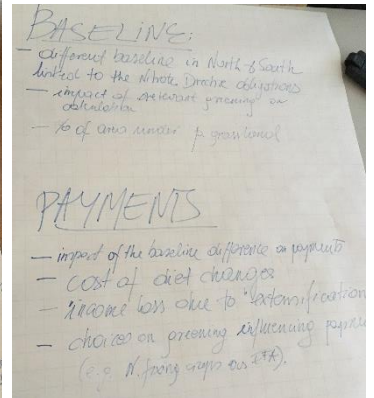 BASELINE:
- different baseline in North & South
linked to the Nitrate Directive obligations
- impact of relevant greening on
calculation
- % of area under p. grassland
PAYMENTS
- impact of the baseline difference on payments
- cost of diet changes
- income loss due to "extensification
- choices on greening influencing
(e.g. N. fixing crops